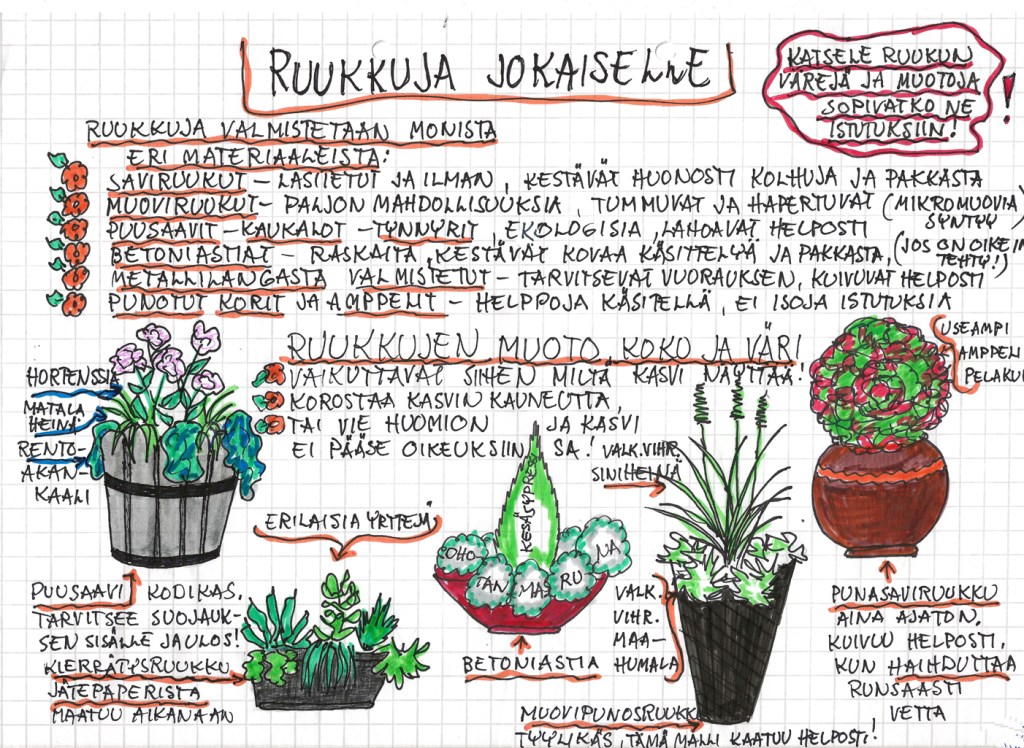 RUUKKUJA JOKAISELLE
KATSELE RUUKUN
VÄREJÄ JA MUOTOJA
SOPIVATKO NE
ISTUTUKSIIN!
!
RUUKKUJA VALMISTETAAN MONISTA
ERI MATERIAALEISTA:
SAVIRUUKUT – LASITETUT JA ILMAN, KESTÄVÄT HUONOSTI KOLHUJA JA PAKKASTA
MUOVIRUUKUT – PALJON MAHDOLLISUUKSIA, TUMMUVAT JA HAPERTUVAT (MIKROMUOVIA
SYNTYY)
PUUSAAVIT – KAUKALOT – TYNNYRIT, EKOLOGISIA, LAHOAVAT HELPOSTI
BETONIASTIAT – RASKAITA, KESTÄVÄT KOVAA KÄSITTELYÄ JA PAKKASTA, (JOS ON OIKEIN
TEHTY!)
METALLILANGASTA VALMISTETUT – TARVITSEVAT VUORAUKSEN, KUIVUVAT HELPOSTI
PUNOTUT KORIT JA AMPPELIT – HELPPOJA KÄSITELLÄ, EI ISOJA ISTUTUKSIA
RUUKKUJEN MUOTO, KOKO JA VÄRI
VAIKUTTAVAT SIIHEN MILTÄ KASVI NÄYTTÄÄ!
KOROSTAA KASVIN KAUNEUTTA,
TAI VIE HUOMION JA KASVI
EI PÄÄSE OIKEUKSIIN SA!
HORTENSSI
MATALA
HEINÄ
RENTO-
AKAN-
KAALI
USEAMPI
AMPPELI
PELAKU
VALK.VIHR.
SINIHEINÄ
ERILAISIA YRTTEJÄ
KESÄSYPRESSI
OHO
TAN
MAS
RU
NA
PUUSAAVI KODIKAS,
TARVITSEE SUOJAUK-
SEN SISÄLLE JALOS!
KIERRÄTYSRUUKKU
JÄTEPAPERISTA
MAATUU AIKANAAN
BETONIASTIA
VALK.
VIHR.
MAA-
HUMALA
MUOVIPUNOSRUUKK
TYYLIKÄS, TÄMÄ MALLI KAATUU HELPOSTI!
PUNASAVIRUUKKU
AINA AJATON.
KUIVUU HELPOSTI,
KUN HAIHDUTTAA
RUNSAASTI
VETTÄ